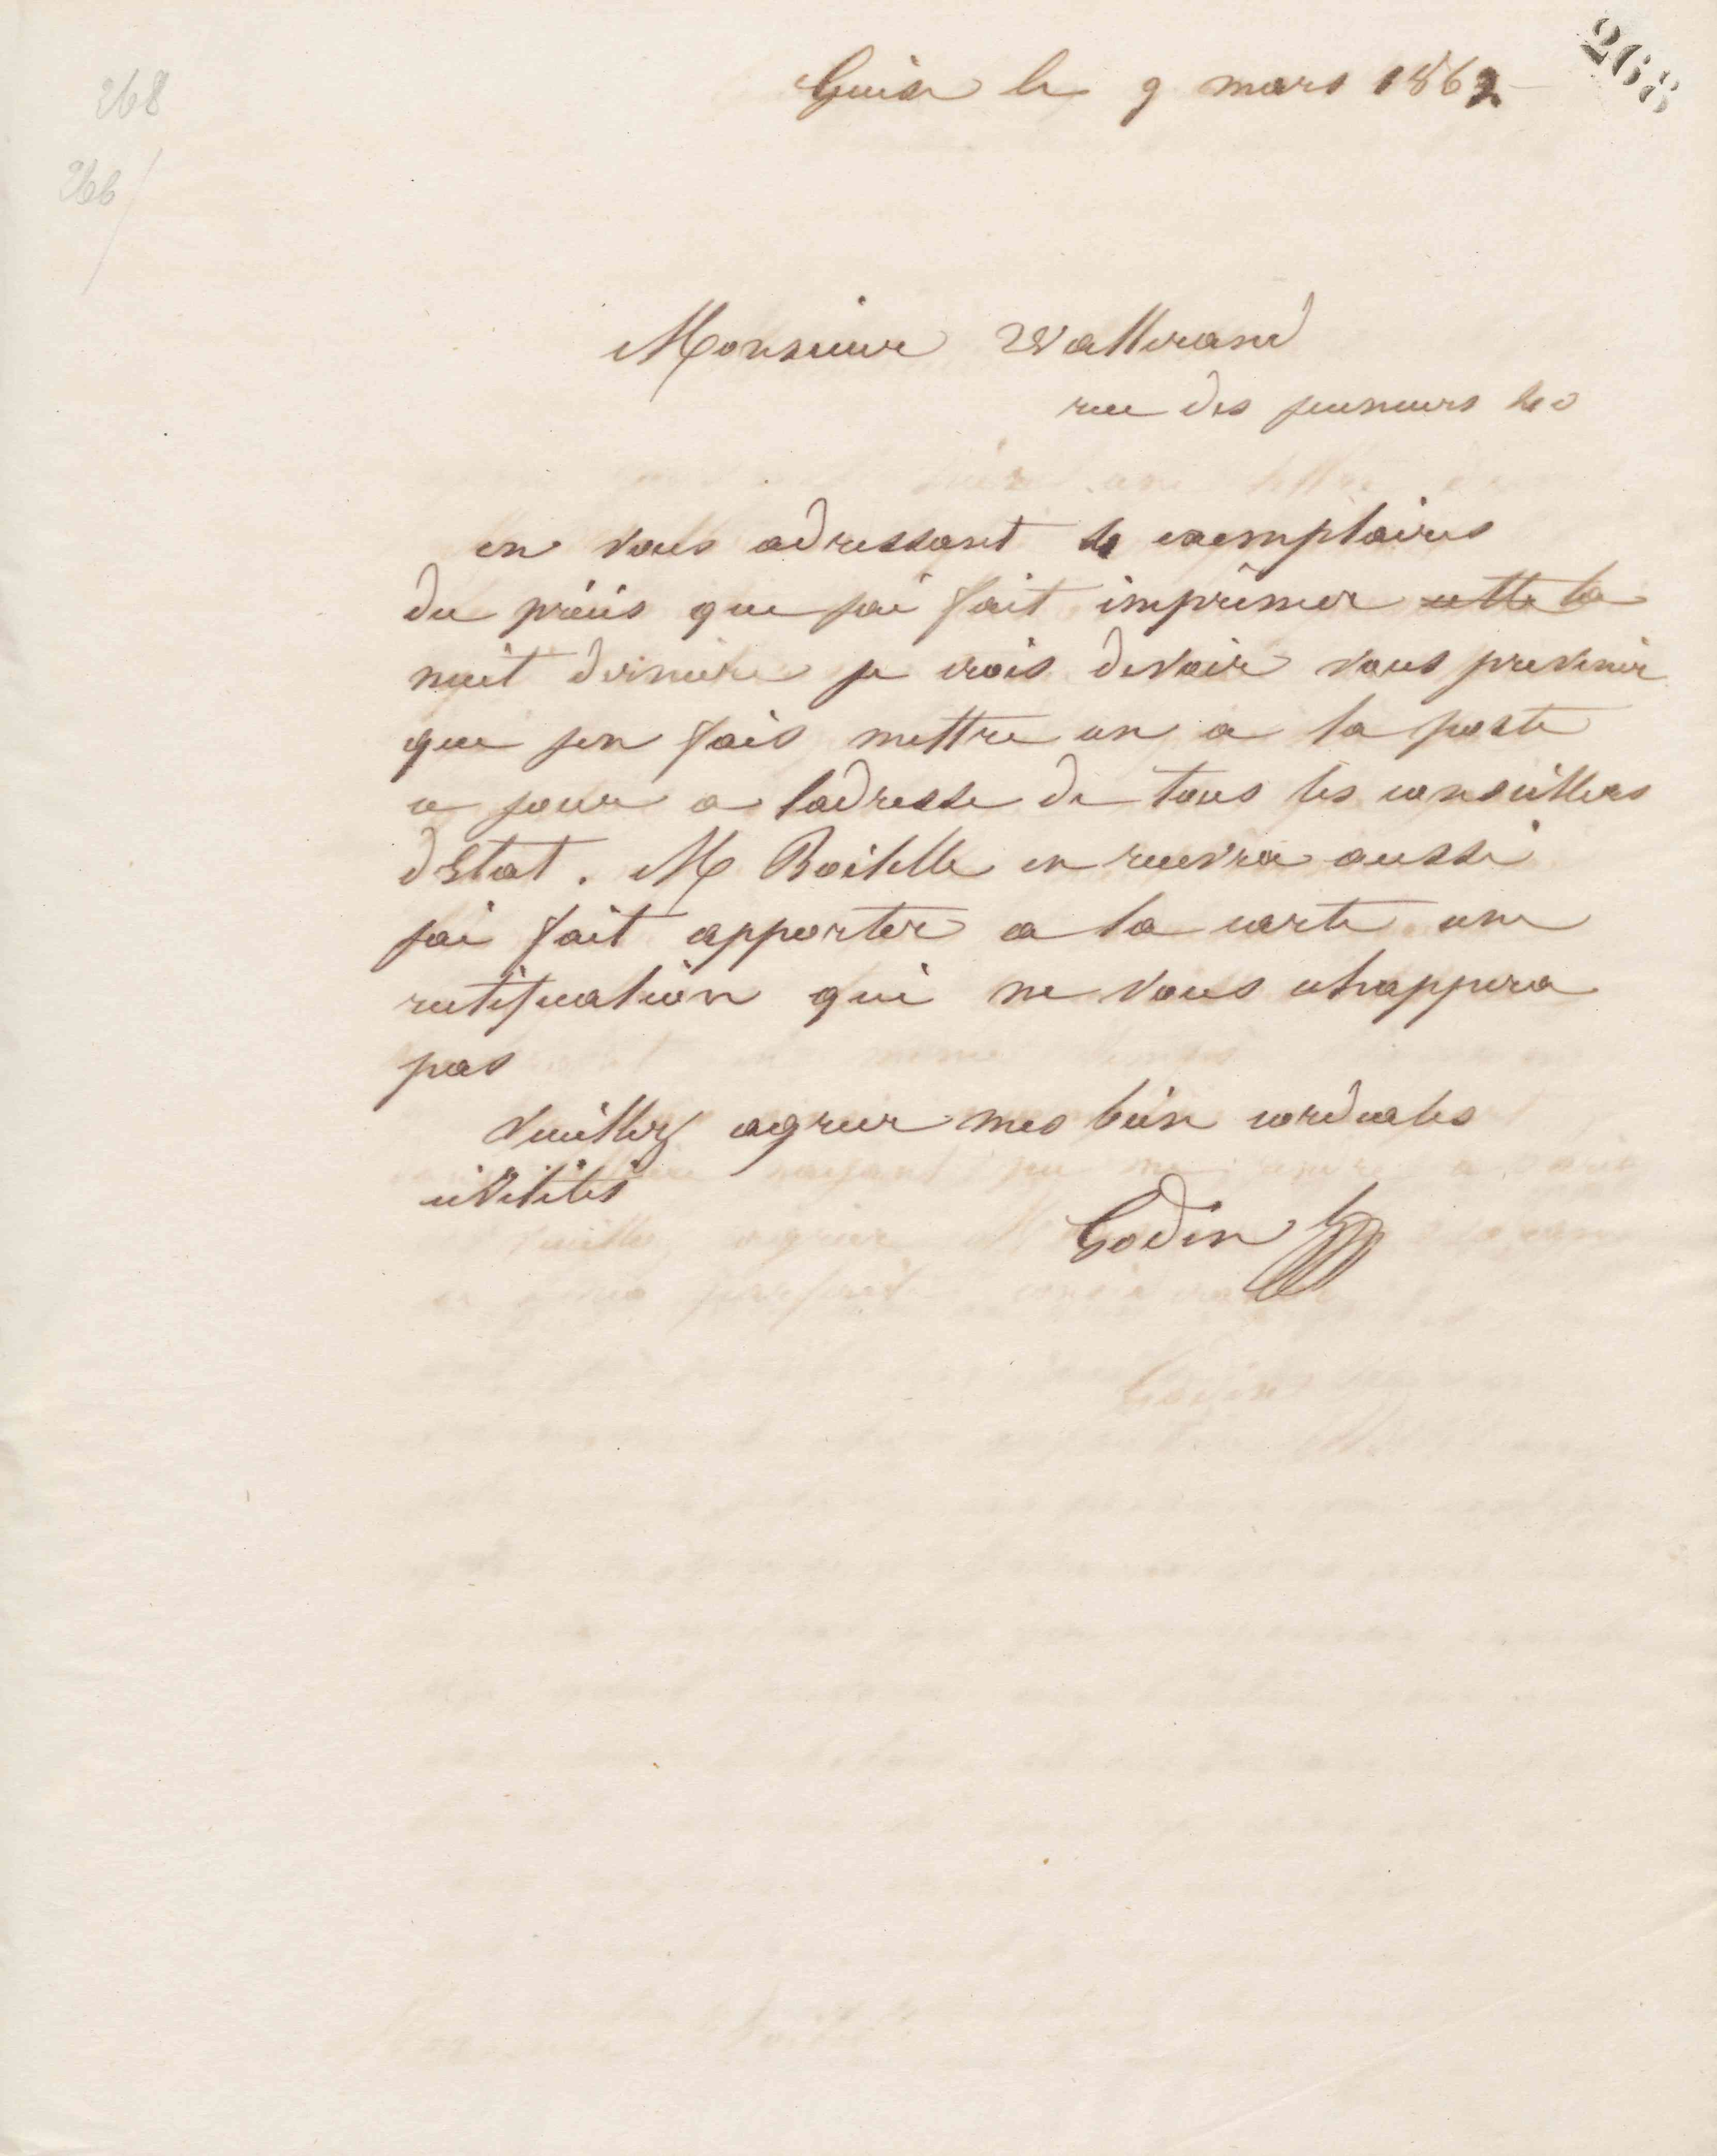 268
268
266
Guise le 9 mars 1862
Monsieur Wallerand
rue des jeuneurs 40
en vous adressant 4 exemplaires
du précis que jai fait imprimer cette la
nuit derniere je crois devoir vous prevenir
que jen fais mettre un a la poste
ce jour a ladresse de tous les conseillers
dEtat. M Boitelle en recevra aussi
jai fait apporter a la carte une
rectification qui ne vous echappera
pas
Veuillez agreer mes bien cordiales
civilités
Godin